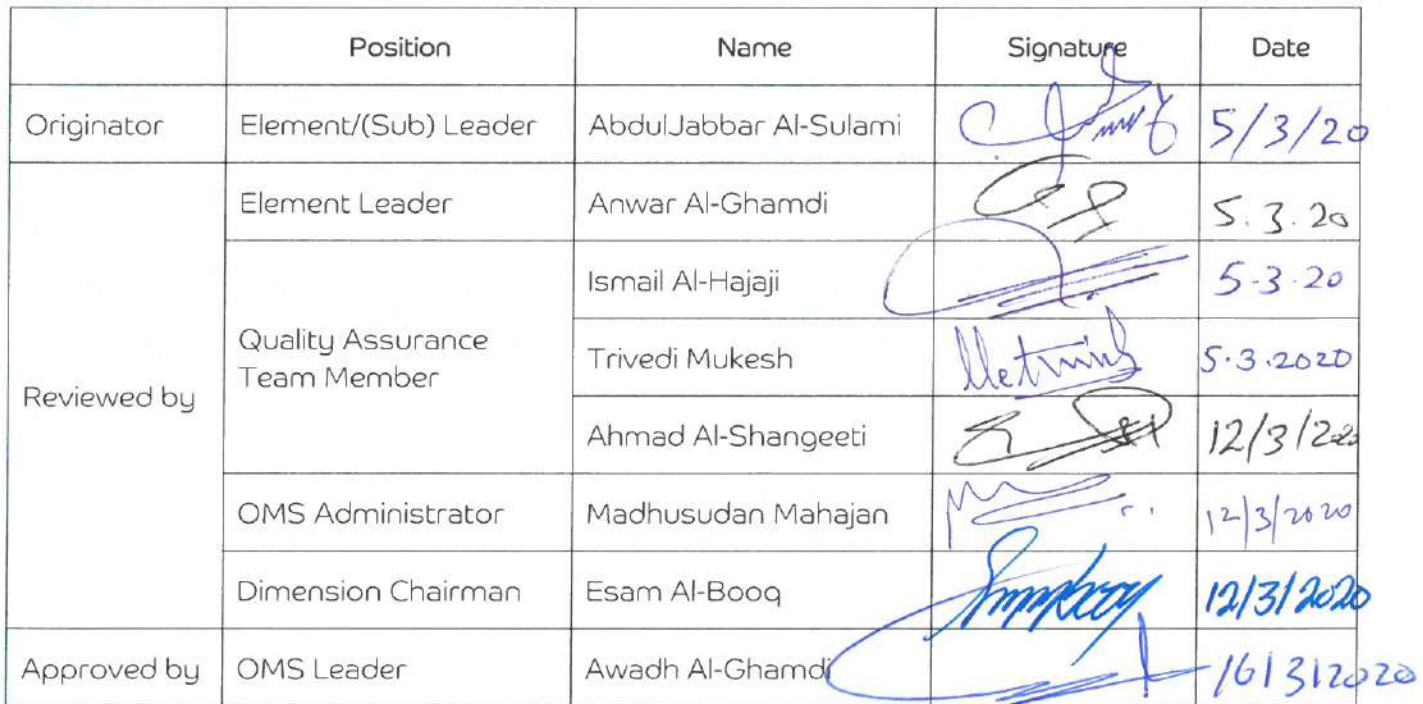 Position Name Signature Date
Originator Element/(Sub) Leader AbdulJabbar Al-Sulami 5/3/20
Element Leader Anwar Al-Ghamdi 5.3.20
Ismail Al-Hajaji 5.3.20
Quality Assurance
Team Member
Trivedi Mukesh 5.3.2020
Reviewed by
Ahmad Al-Shangeeti 12/3/2020
OMS Administrator Madhusudan Mahajan 12/3/2020
Dimension Chairman Esam Al-Booq 12/3/2020
Approved by OMS Leader Awadh Al-Ghamdi 16/3/2020